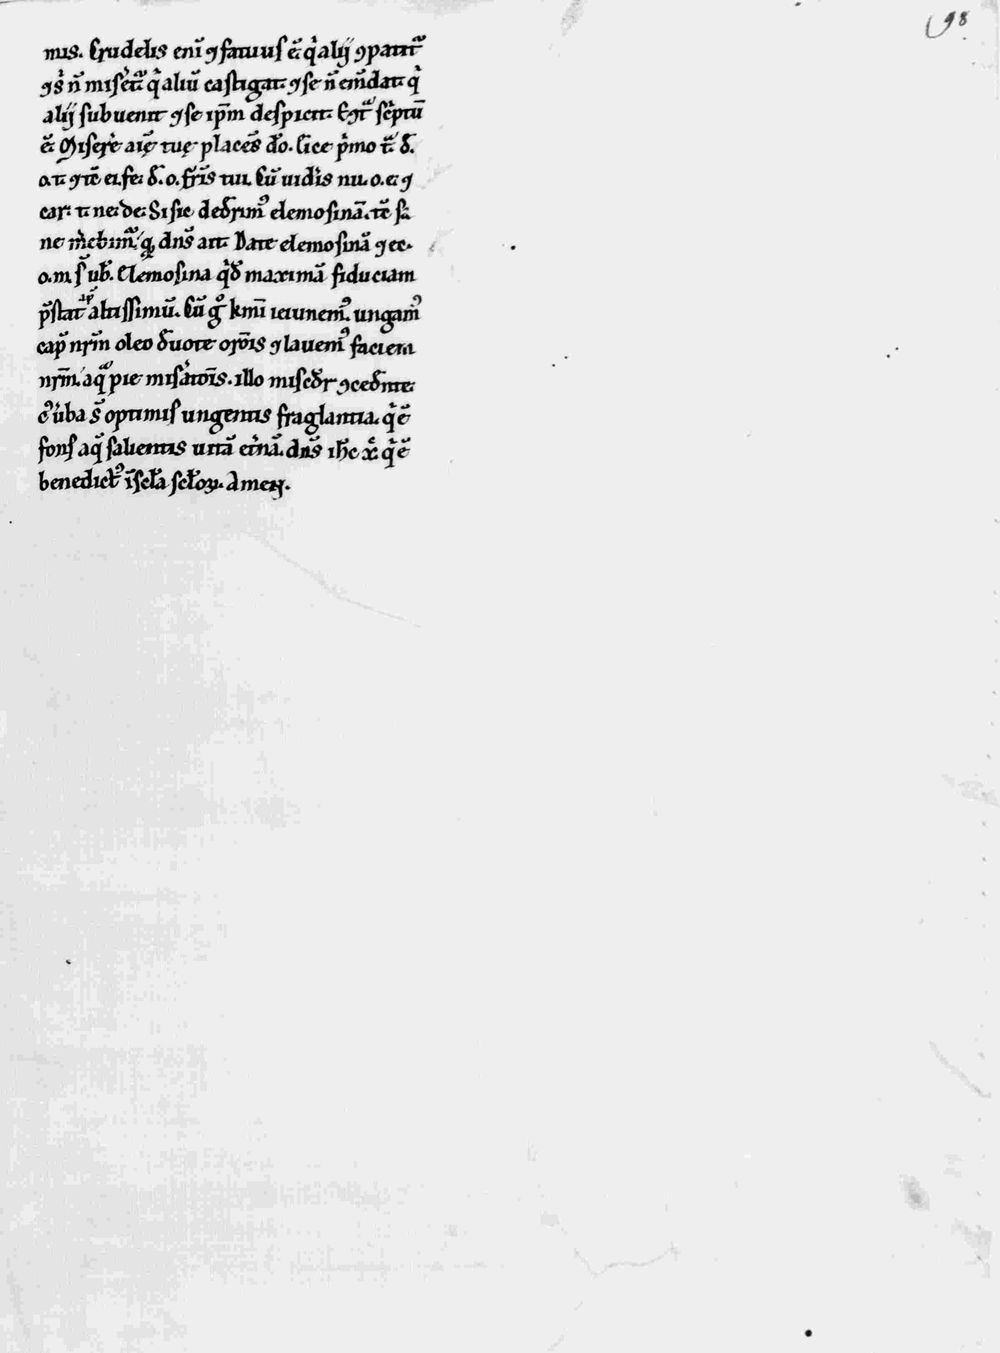 98
mis. Crudelis eni᷑ ⁊ fatuus ē. qͥ alij ↄpatit᷑
⁊ sͥ n̄ misẻt᷑. qͥ aliū castigat. ⁊ se n̄ em̄dat. qͥ
alij subuenit ⁊ se ip̄m despicit. Eͥgͣ sc̄ptū
ē. Miserẻ aīę tuę placēs dō. Eice pͥmo t̄. d̄.
o. t. ⁊ tē ei. fe. d̄. o. fr̄is tui. Cū uidīs nu. o. e. ⁊
car. t. ne. de. Si sic dedͥimꝰ elemosinā. tē sa
ne mͥebimᷣ. qͣ dn̄s ait. Date elemosinā ⁊ ec.
o. m. s̄ ub̄. Elemosina qͥd̄ maximā fiduciam
p̄stat ap̄ altissimū. Cū gͦ kmī ieiunemꝰ. ungamꝰ
cap̄ nr̄m oleo d̄uote or̄ois ⁊ lauemꝰ faciem
nr̄m. aqͣ pie misͣtōis. illo misc̄dr ↄced̄nte.
cꝰ ūba s̄ optimis ungentis fraglantia. qͥ ē
fons aq̄ salientis uitā et̄nā. dn̄s ih̄c xͨ qͥ ē
benedictꝰ ī sc̄la sc̄loꝝ. Amen.